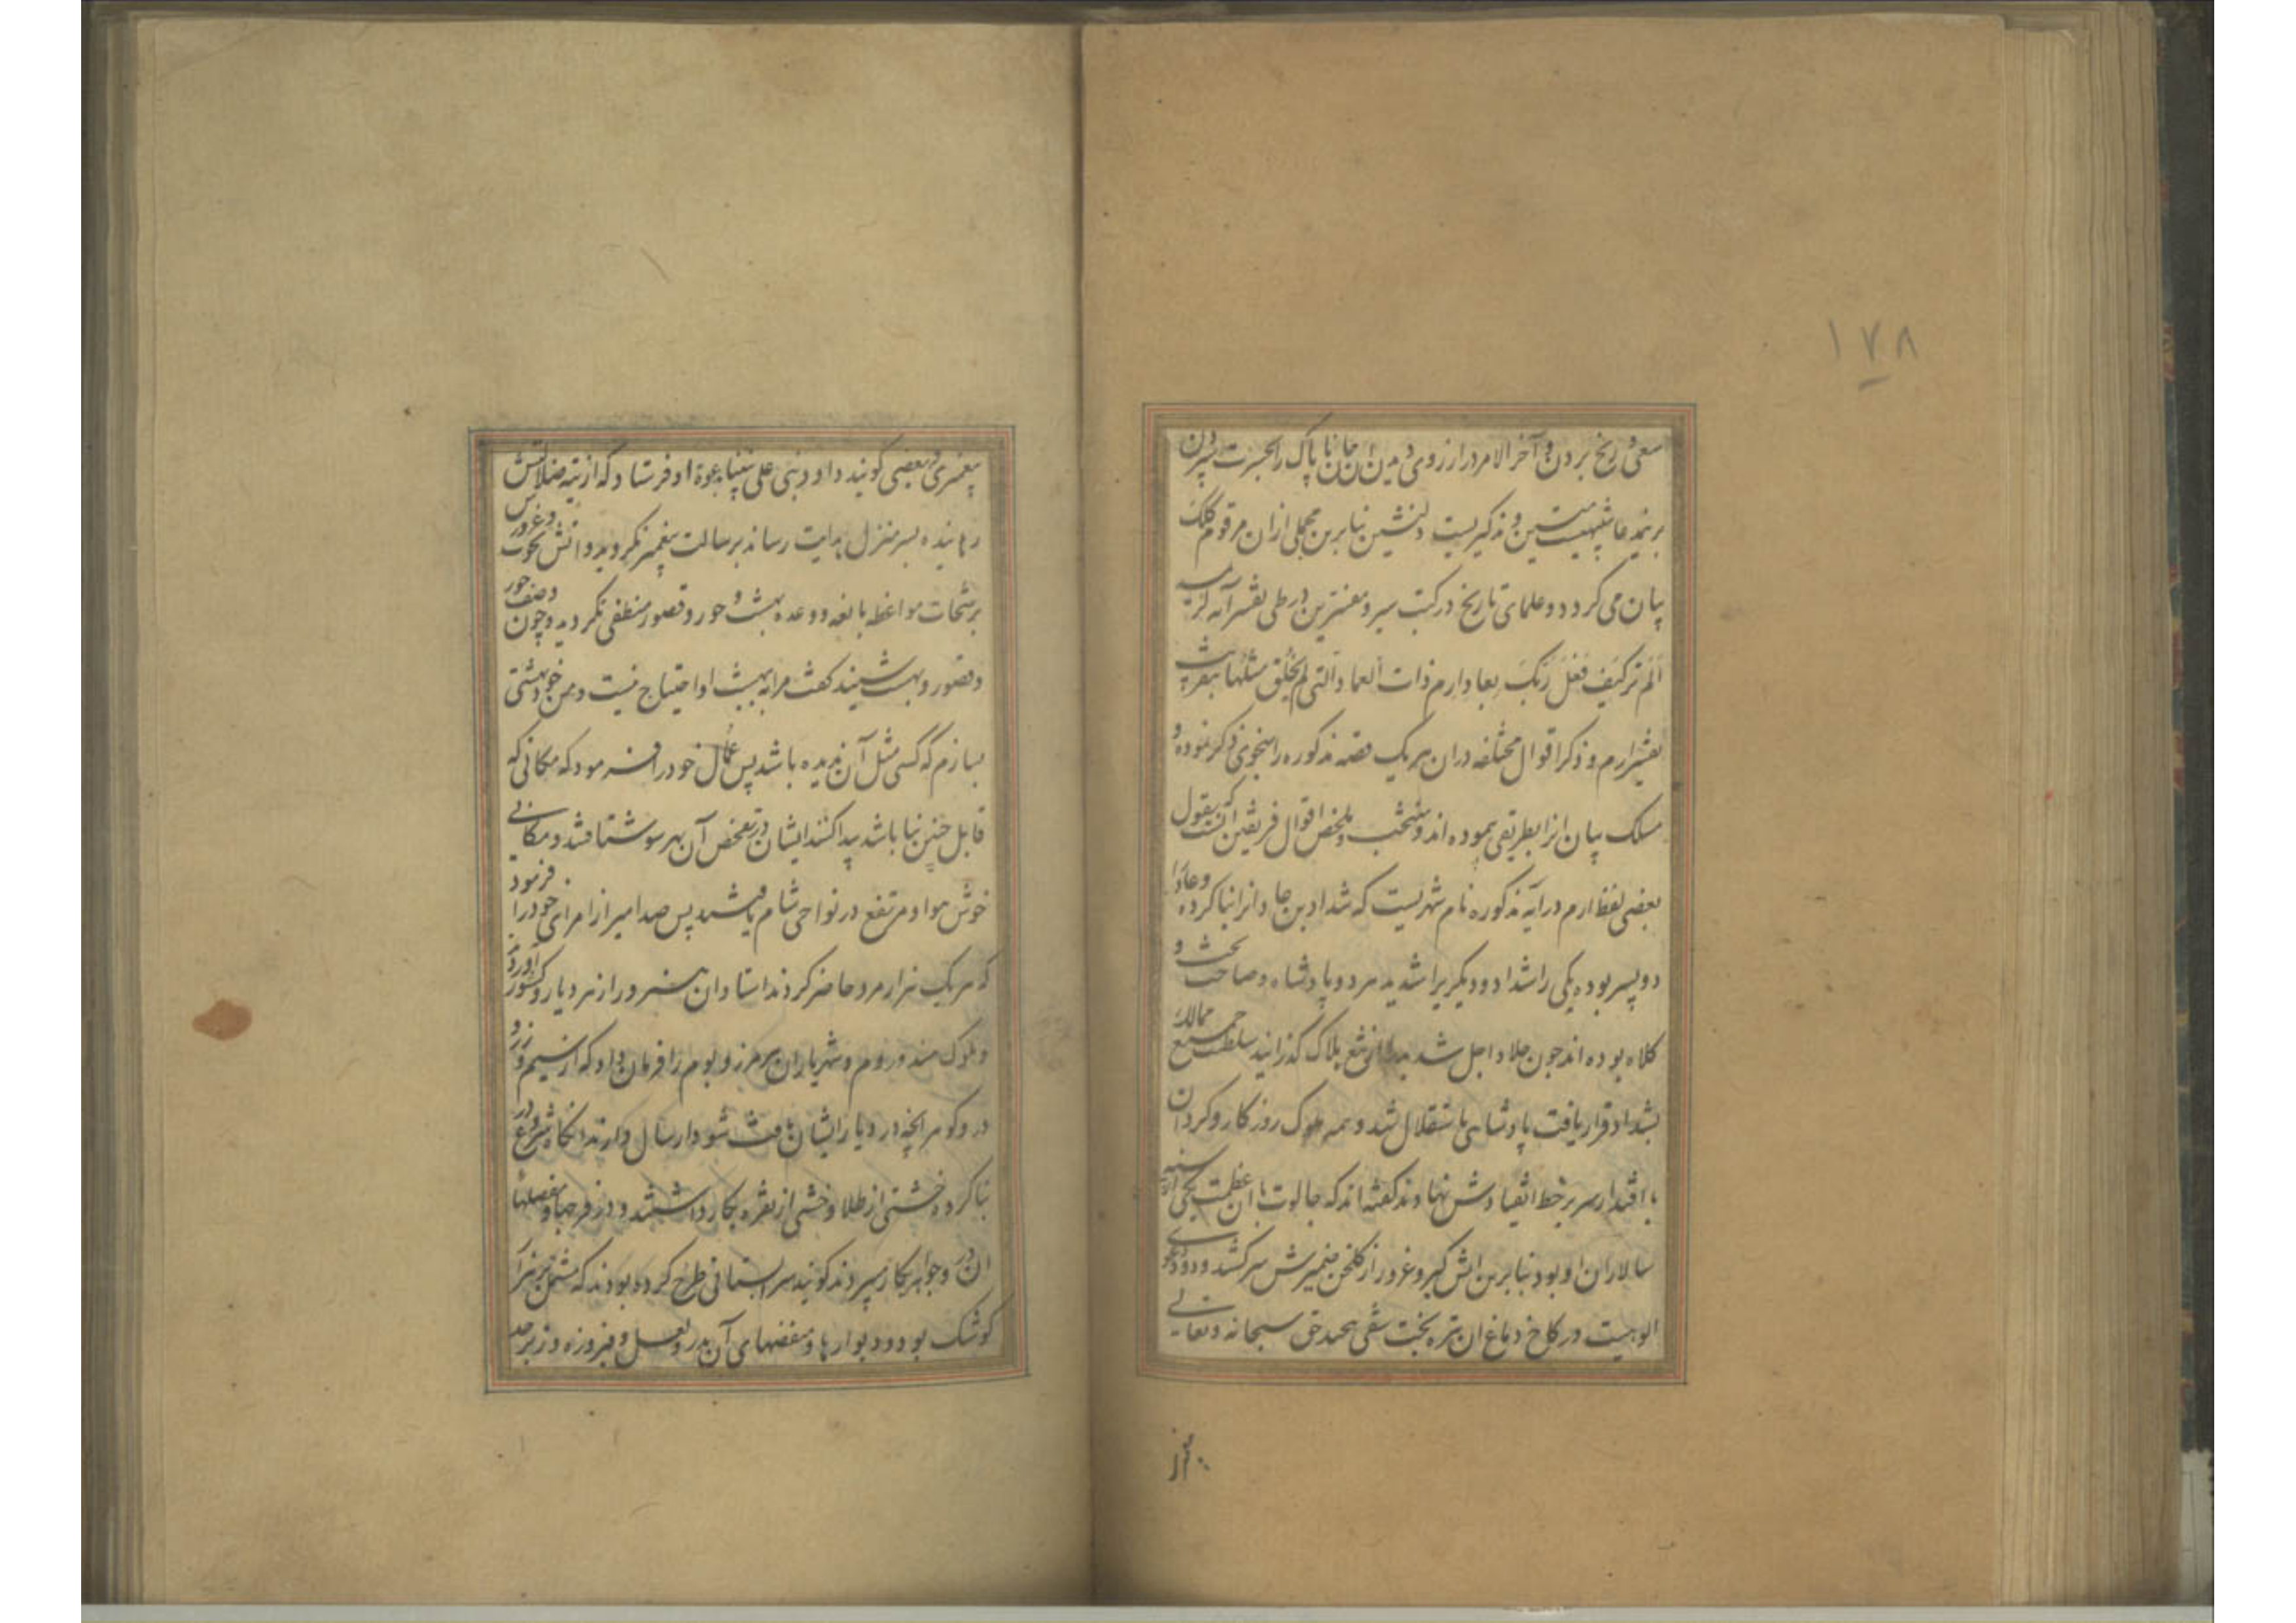 ۱۷۸
سعی و رنج بردن و آخر الامر در ارزوی دیدن ان جان ناپاک را بحسرت سپردن
برنید عاشیهیست متین و تذکیریست دلنشین بنابرین مجملی از ان مرقوم کلک
بیان می کردد و علمای تاریخ در کتب سیر و مفسرین در طی تفسیر آیه کریمه
الم تر کیف فعل ربک بعاد ارم ذات العماد التی لم یخلق مثلها بتقریب
تفسیر ارم و ذکر اقوال مختلفه در ان هر یک قصه مذکوره را بنحوی ذکر نموده و
مسلک بیان انرا بطریقی پیموده اند و منتخب و ملخص اقوال فریقین انست که بقول
بعضی لفظ ارم در آیه مذکوره نام شهریست که شداد بن عاد انرا بنا کرده و عاد را
دو پسر بوده یکی را شداد و دیکریرا شدید هر دو پادشاه و صاحب تخت و
کلاه بوده اند چون جلاد اجل شدید را از تیغ هلاک کذرانید سلطنت جمیع ممالک
بشداد قرار یافت پادشاهی باستقلال شد و همه ملوک روزکار و کردنان
با اقتدار سر بر خط انقیادش نهادند کفته اند که جالوت با ان عظمت یکی از سپه
سالاران او بود بنابرین اتش کبر و غرور از کلخن ضمیرش سر کشید و دود دعوی
الوهیت در کاخ دماغ ان تیره بخت شقی پیچید حق سبحانه و تعالی
پیغمبری و بعضی کویند داود نبی علی نبینا بدعوة او فرستاد که از تیه ضلالتش
رهانیده بسر منزل هدایت رساند برسالت پیغمبر نکروید و اتش نخوت و غرورش
برشحات مواعظ بالغه و وعده بهشت و حور و قصور منطفی نکردید و چون وصف حور
و قصور و بهشت شنید کفت مرا به بهشت او احتیاج نیست و من خود بهشتی
بسازم که کسی مثل آن ندیده باشد پس عمال خود را فرمود که مکانی که
قابل چنین بنا باشد پیدا کنند ایشان در تفحص آن بهر سو شتافتند و مکانی
خوش هوا و مرتفع در نواحی شام یافتند پس صد امیر از امرای خود را فرمود
که هر یک هزار مرد حاضر کردند استادان هنرور از هر دیار و کشور آورد
و ملوک هند و روم و شهریاران هر مرز و بوم را فرمان داد که از سیم و زر و
در و کوهر انچه در دیار ایشان یافت شود ارسال دارند انکاه شروع در
بنا کرده خشتی از طلا و خشتی از نقره بکار داشتند و در فرجها و مفصلهای
ان در و جواهر بکار بردند کویند سرابستانی طرح کرده بودند که مشتمل بر هزار
کوشک بود و دیوارها و سقفهای آن بدر و لعل و فیروزه و زبرجد